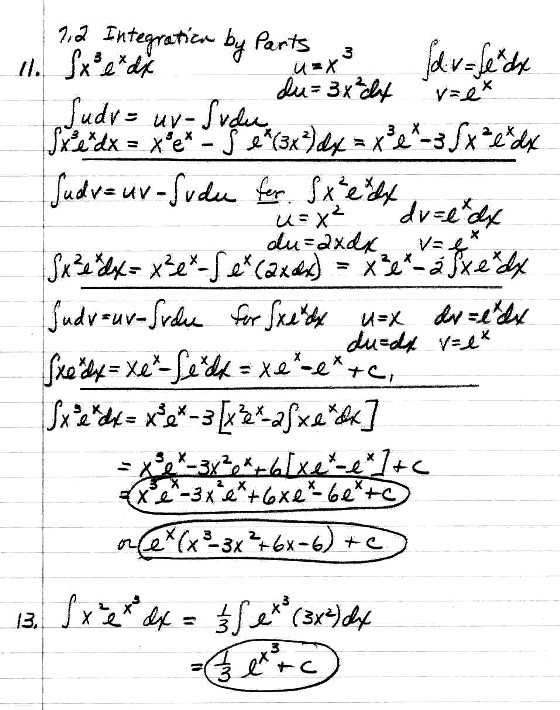 7.2 Integration by Parts
11. ∫x³eˣdx u=x³ ∫dv=∫eˣdx
du=3x²dx v=eˣ
∫udv = uv-∫vdu
∫x³eˣdx = x³eˣ - ∫eˣ(3x²)dx = x³eˣ-3∫x²eˣdx
∫udv=uv-∫vdu for ∫x²eˣdx
u=x² dv=eˣdx
du=2xdx v=eˣ
∫x²eˣdx= x²eˣ-∫eˣ(2xdx) = x²eˣ-2∫xeˣdx
∫udv=uv-∫vdu for ∫xeˣdx u=x dv=eˣdx
du=dx v=eˣ
∫xeˣdx=xeˣ-∫eˣdx = xeˣ-eˣ+c₁
∫x³eˣdx= x³eˣ-3[x²eˣ-2∫xeˣdx]
= x³eˣ-3x²eˣ+6[xeˣ-eˣ]+c
= x³eˣ-3x²eˣ+6xeˣ-6eˣ+c
or eˣ(x³-3x²+6x-6)+c
13. ∫x²e^(x³)dx = 1/3∫e^(x³)(3x²)dx
= 1/3 e^(x³)+c